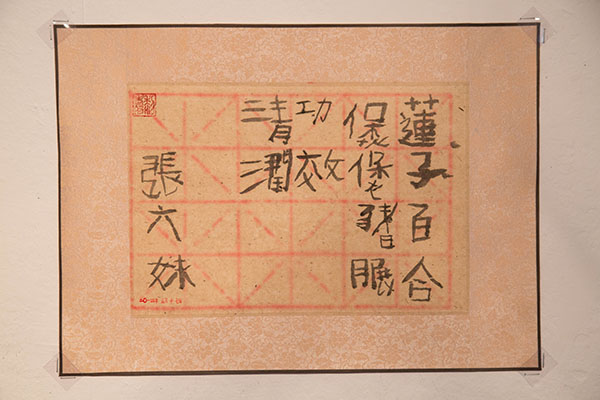 蓮子百合
煲保豬
功效
清潤
張六妹